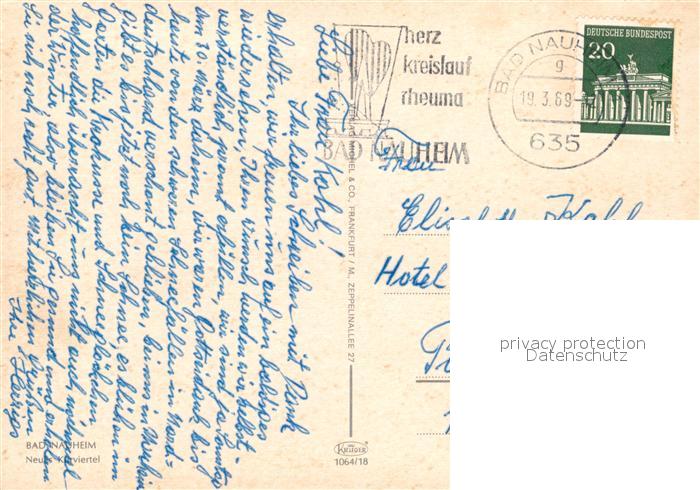 Liebe Frau Kahl!
Ihr liebes Schreiben mit Dank
erhalten, wir freuen uns auf ein baldiges
wiedersehen, Ihren Wunsch werden wir selbst
verständlich prompt erfüllen, wir sind ja Sonntag
am 30. März daheim, wir waren Gottseidank bis
heut von den schweren Schneefällen in Nord-
deutschland verschont geblieben, bei uns in
gibt es bis jetzt noch kein Schnee, es blühen im
Garten die Krokus und Schneeglöckchen
hoffentlich überrascht uns nicht auch mal
der Winter, also bleiben Sie gesund und erholen
Sie sich noch recht gut. Mit herzlichen Grüßen
Ihre
BAD NAUHEIM
Neues Kurviertel
VERLAG MICHEL & CO., FRANKFURT / M., ZEPPELINALLEE 27
KRÜGER
1064/18
herz
kreislauf
rheuma
BAD NAUHEIM
BAD NAUHEIM
g
19.3.69
635
DEUTSCHE BUNDESPOST
20
Frau
Elisabeth Kahl
Hotel
privacy protection
Datenschutz